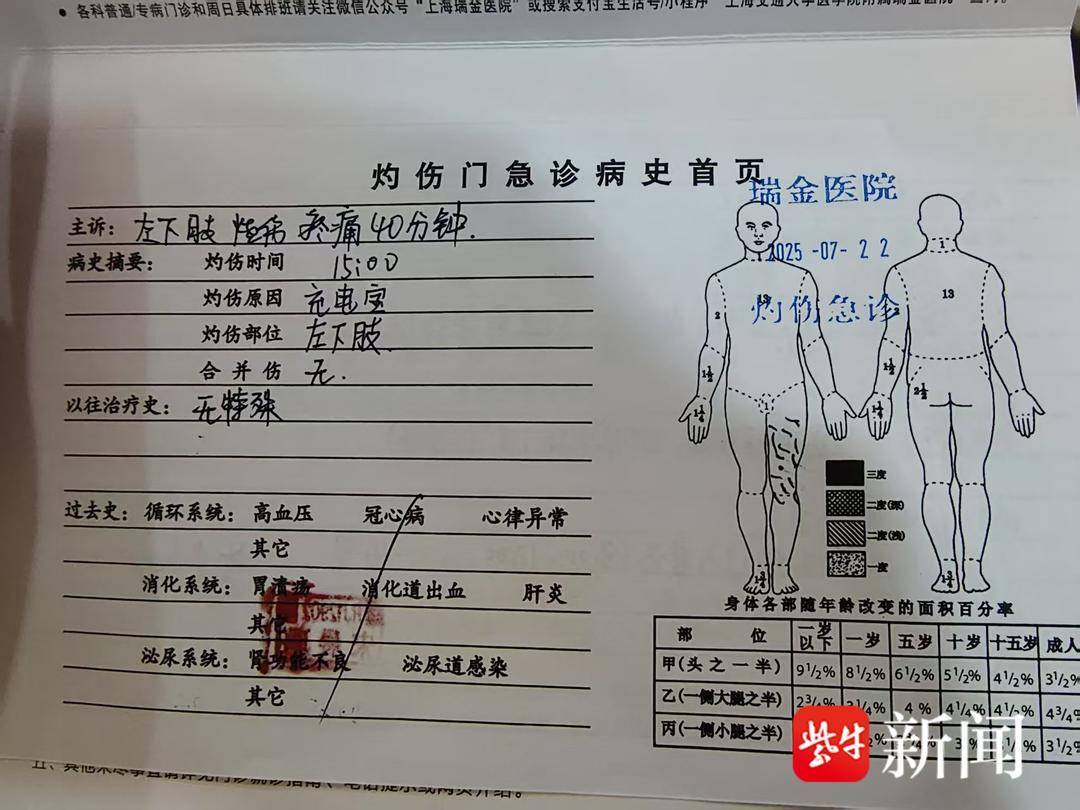 各科普通/专病门诊和周日具体排班请关注微信公众号“上海瑞金医院”或搜索支付宝生活号/小程序
灼伤门急诊病史首页
瑞金医院
2025-07-22
灼伤急诊
主诉: 左下肢 烧伤 疼痛 40分钟.
病史摘要: 灼伤时间 15:00
灼伤原因 充电宝
灼伤部位 左下肢.
合并伤 无.
以往治疗史: 无特殊
过去史: 循环系统: 高血压 冠心病 心律异常
其它
消化系统: 胃溃疡 消化道出血 肝炎
其它
泌尿系统: 肾功能不良 泌尿道感染
其它
1 13
2 13
1½ 1½
1¼ 1 1¼ 2½
三度
二度(深)
二度(浅)
一度
1¾ 1¾
身体各部随年龄改变的面积百分率
部位 一岁以下 一岁 五岁 十岁 十五岁 成人
甲(头之一半) 9½% 8½% 6½% 5½% 4½% 3½%
乙(一侧大腿之半) 2¾% 4% 4¼% 4½% 4¾%
丙(一侧小腿之半) 3½%
紫牛新闻